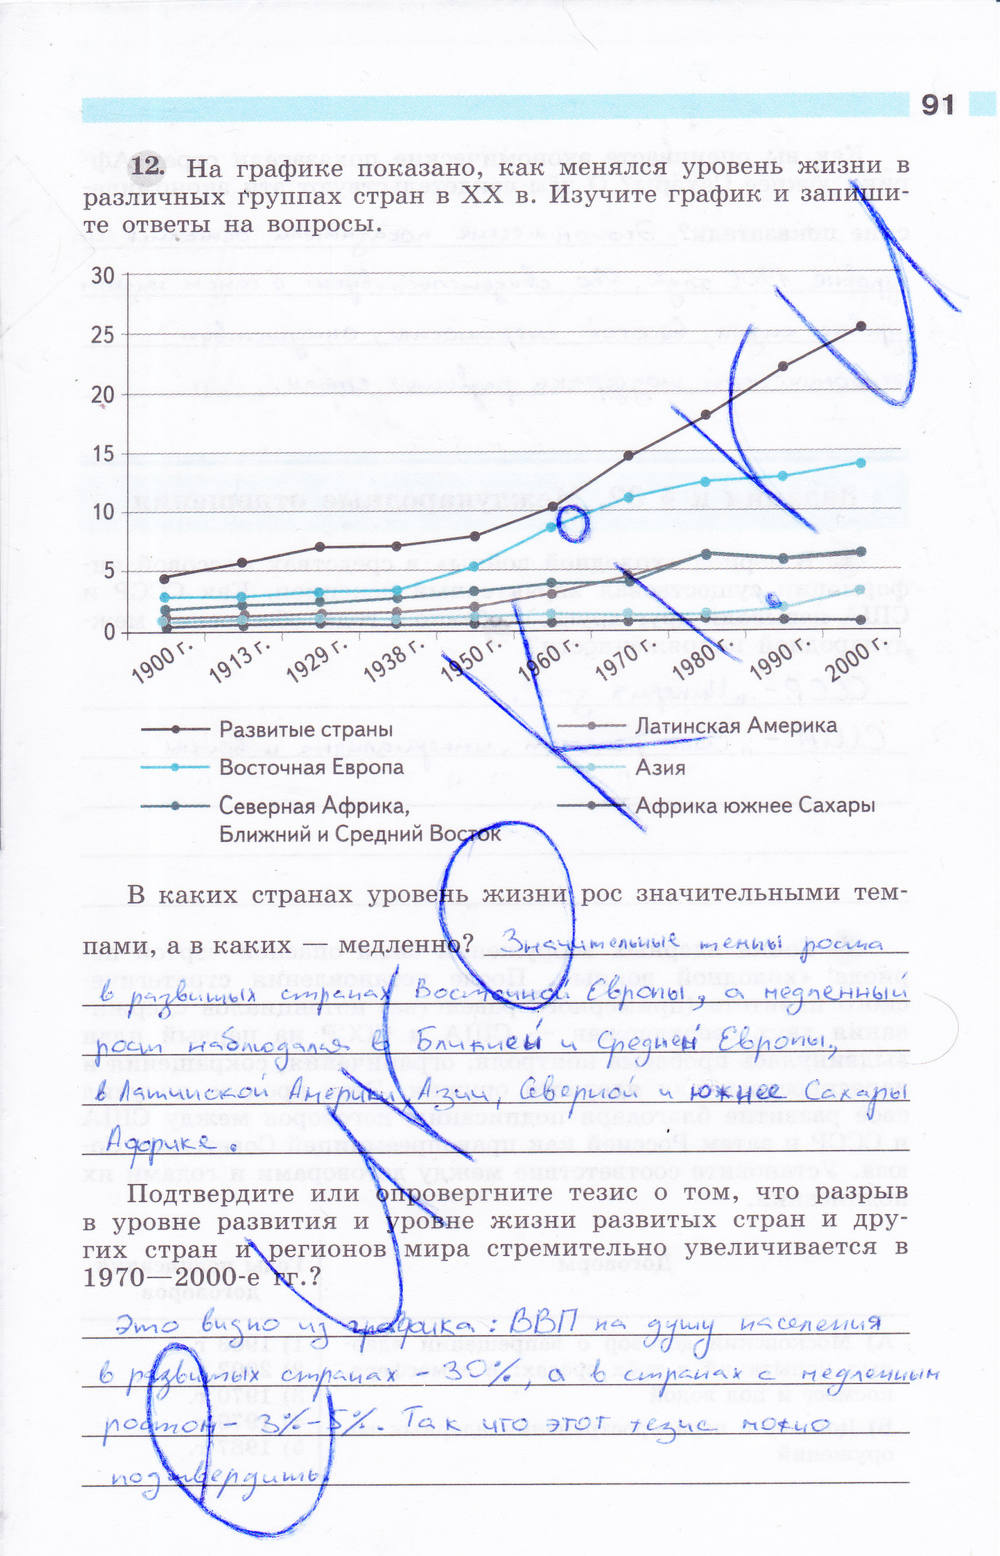 91
12. На графике показано, как менялся уровень жизни в
различных группах стран в XX в. Изучите график и запиши-
те ответы на вопросы.
30
25
20
15
10
5
0
1900 г. 1913 г. 1929 г. 1938 г. 1950 г. 1960 г. 1970 г. 1980 г. 1990 г. 2000 г.
Развитые страны
Латинская Америка
Восточная Европа
Азия
Северная Африка,
Ближний и Средний Восток
Африка южнее Сахары
В каких странах уровень жизни рос значительными тем-
пами, а в каких — медленно? Значительные темпы роста
в развитых странах Восточной Европы, а медленный
рост наблюдался в Ближней и Средней Европы,
в Латинской Америки, Азии, Северной и южнее Сахары
Африке.
Подтвердите или опровергните тезис о том, что разрыв
в уровне развития и уровне жизни развитых стран и дру-
гих стран и регионов мира стремительно увеличивается в
1970—2000-е гг.?
Это видно из графика: ВВП на душу населения
в развитых странах - 30%, а в странах с медленным
ростом - 3%-5%. Так что этот тезис можно
подтвердить.